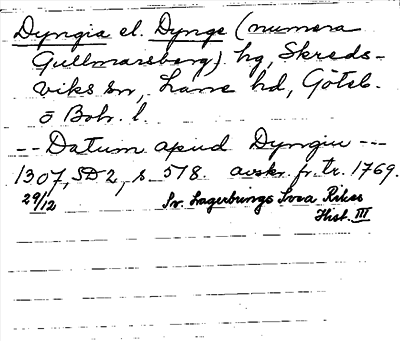 Dyngia el. Dynge (numera
Gullmarsberg) hg, Skreds-
viks sn, Lane hd, Göteb.
o Boh. l.
-- Datum apud Dyngiu ---
1307, SD 2, s 578. avskr. fr. tr. 1769.
29/12 Sv. Lagerbrings Svea Rikes
Hist. III